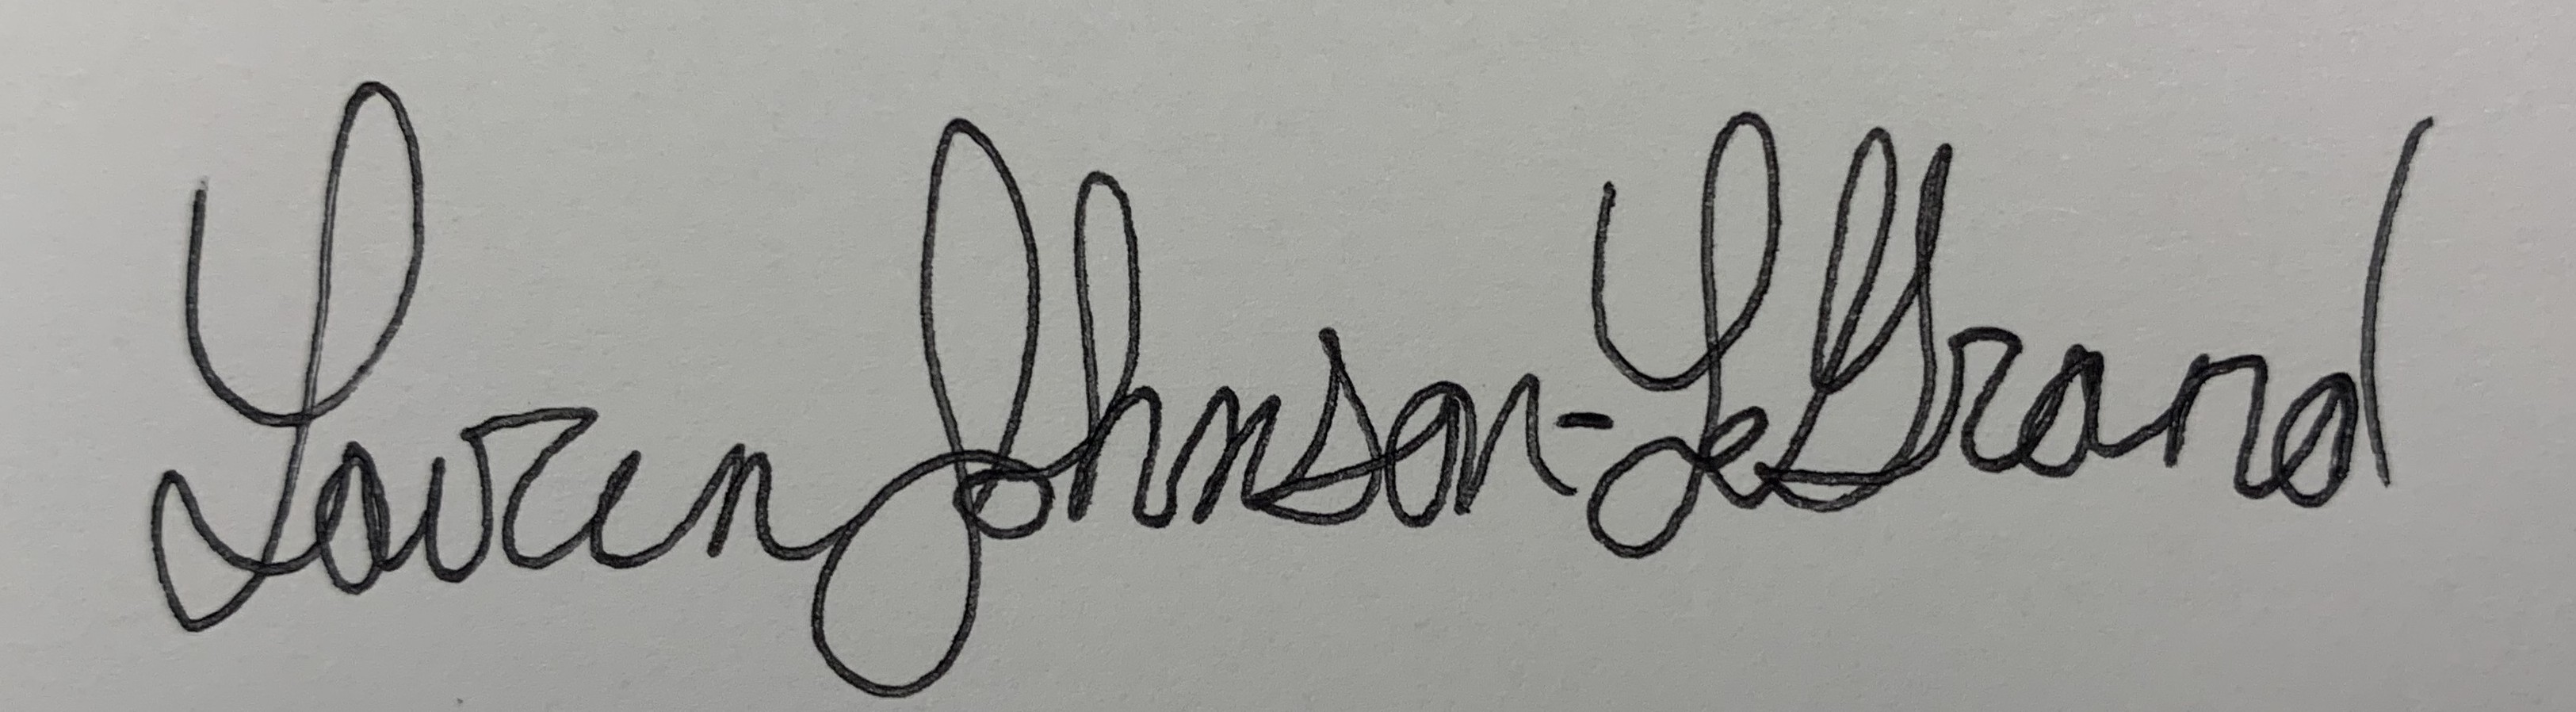 Lauren Johnson-LeGrand